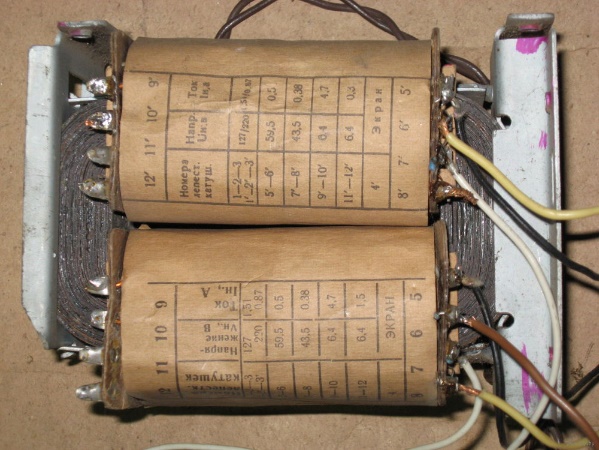 12' 11' 10' 9'
Номера Напр. Ток
лепест. Uн,в Iн,а
катуш.
1–2–3 127/220
1'–2'–3'
5'–6' 59,5 0,5
7'–8' 43,5 0,38
9'–10' 6,4 4,7
11'–12' 6,4 0,3
4' Экран
8' 7' 6' 5'
11 10 9
Напря- Ток
жение Iн., А
катушек Uн., В
127 1,51
220 0,87
–6 59,5 0,5
–8 43,5 0,38
–10 6,4 4,7
–12 6,4 1,5
ЭКРАН
7 6 5